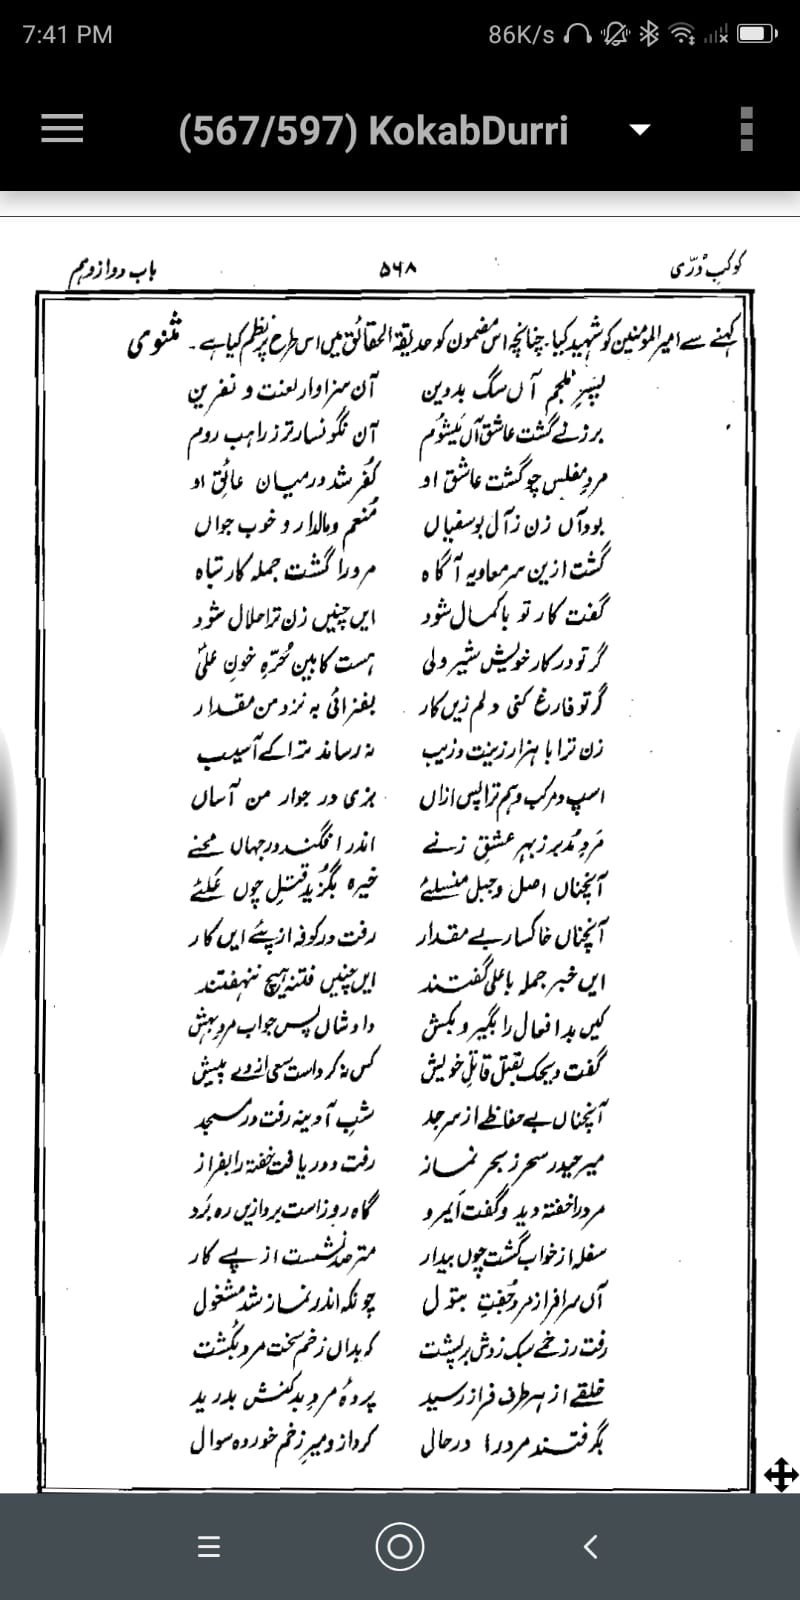 7:41 PM 86K/s
(567/597) KokabDurri
کوکبِ دُرّی ۵۶۸ باب دوازدہم
کہنے سے امیر المؤمنین کو شہید کیا۔ چنانچہ اس مضمون کو حدیقۃ الحقائق میں اس طرح پر نظم کیا ہے۔ مثنوی
پسرِ ملجم آں سگ بد دین آن سزاوار لعنت و نفرین
بر زنے گشت عاشق آں مَیشُوم آن نگونسار تر ز راہب روم
مردِ مفلس چو گشت عاشق او کُفر شد درمیان عائق او
بود آں زن ز آل بوسفیاں مُنعم و مالدار و خوب جواں
گشت ازین سر معاویہ آگاہ مرورا گشت جملہ کار تباہ
گفت کار تو باکمال شود ایں چنیں زن ترا حلال شود
گر تو در کار خویش شیر دلی ہست کابین حُرّہ خونِ علیؑ
گر تو فارغ کنی دلم زیں کار بفزائی بہ نزد من مقدار
زن ترا با ہزار زینت و زیب نہ رساند ترا کسے آسیب
اسپ و مرکب دہم ترا پس ازاں بزی در جوار من آساں
مردِ مُدبر ز بہر عشقِ زنے اندر افگند در جہاں محنے
آنچناں اصل و جبل خیرہ بگزید قتل چوں عَلیئے
آنچناں خاکسار بے مقدار رفت در کوفہ از پئے ایں کار
ایں خبر جملہ با علی گفتند ایں چنیں فتنہ ہیچ ننہفتند
کیں بد افعال را بگیر و بکش داد شاں پس جواب مرد بہش
گفت ویحک بقتل قاتلِ خویش کس نہ کرداست سعی ازوے پیش
آنچناں بے حفاظے از سر جد شبِ آدینہ رفت در مسجد
میر حیدر سحر ز بہر نماز رفت و دریافت خفتہ را بفراز
مرد را خفتہ دید و گفت اَیمرو گاہ روز است بر دازیں رہ بَرد
سفلہ از خواب گشت چوں بیدار مترصد نشست از پے کار
آں سرافراز مرد جُفتِ بتول چونکہ اندر نماز شد مشغول
رفت زخمے سبک زدش بر پشت کہ بداں زخم سخت مرد بکُشت
خلقے از ہر طرف فراز رسید پردۂ مردِ بدکنش بدرید
بگرفتند مرد را درحال کرد ازو میر زخم خوردہ سوال